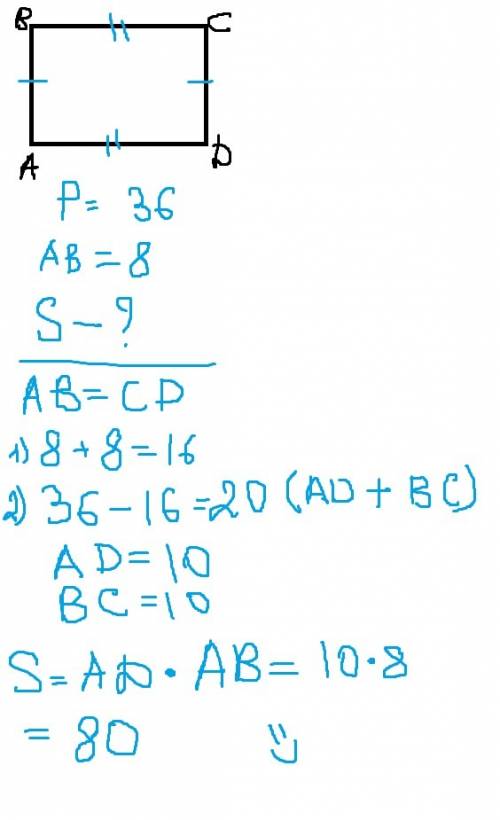 B C
A D
P = 36
AB = 8
S - ?
AB = CD
1) 8 + 8 = 16
2) 36 - 16 = 20 (AD + BC)
AD = 10
BC = 10
S = AD · AB = 10 · 8
= 80